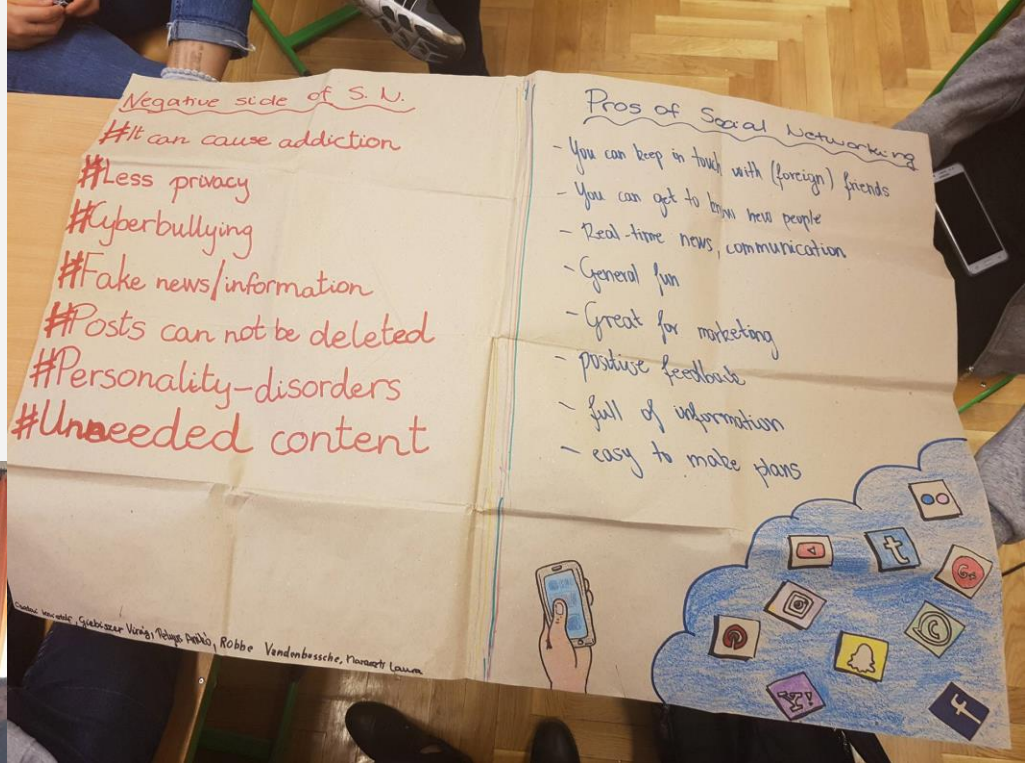 Negative side of S. N.
#It can cause addiction
#Less privacy
#Cyberbullying
#Fake news/information
#Posts can not be deleted
#Personality-disorders
#Unneeded content
Pros of Social Networking
- You can keep in touch with (foreign) friends
- You can get to know new people
- Real-time news, communication
- General fun
- Great for marketing
- positive feedback
- full of information
- easy to make plans
Robbe Vandenbossche, Laura